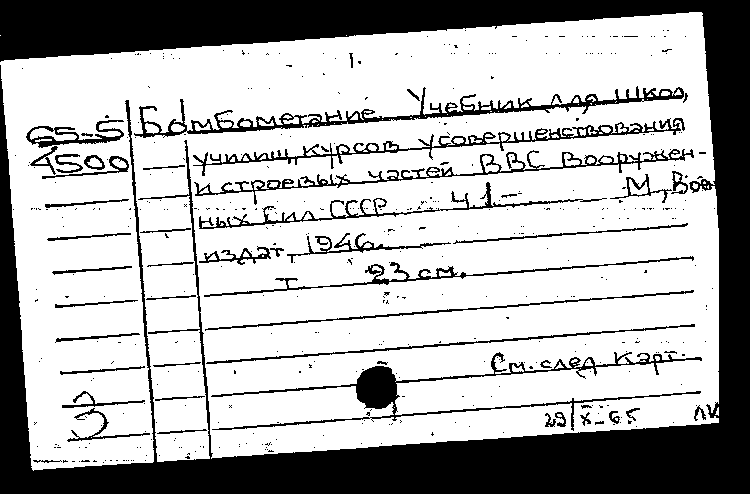 1.
65-5 Бомбометание. Учебник для школ,
4500 училищ, курсов усовершенствования
и строевых частей ВВС Вооружен-
ных Сил СССР. Ч 1- М, Воен
издат, 1946.
т 23 см.
См. след. карт.
3
29/X-65 ЛК